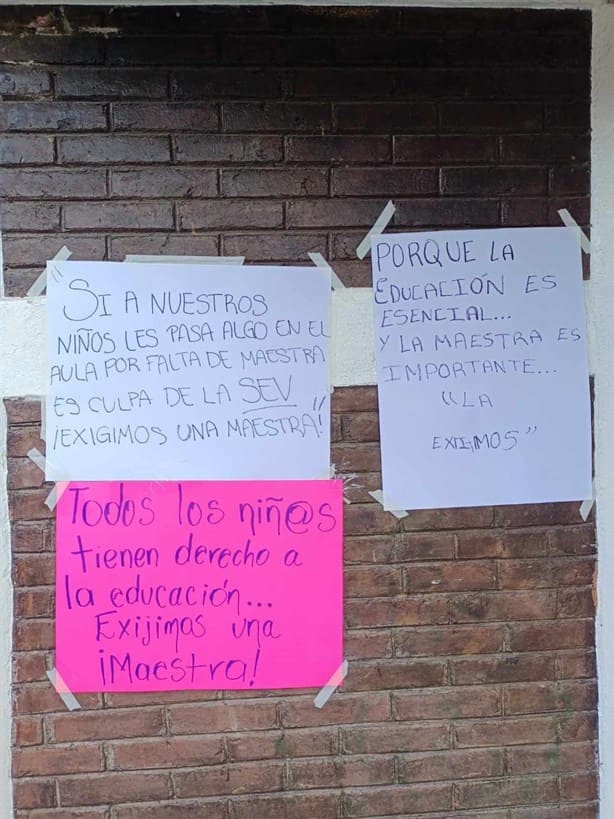 "SI A NUESTROS
NIÑOS LES PASA ALGO EN EL
AULA POR FALTA DE MAESTRA
ES CULPA DE LA SEV
¡EXIGIMOS UNA MAESTRA!"
PORQUE LA
EDUCACIÓN ES
ESENCIAL...
Y LA MAESTRA ES
IMPORTANTE...
"LA
EXIGIMOS"
Todos los niñ@s
tienen derecho a
la educación...
Exijimos una
¡Maestra!